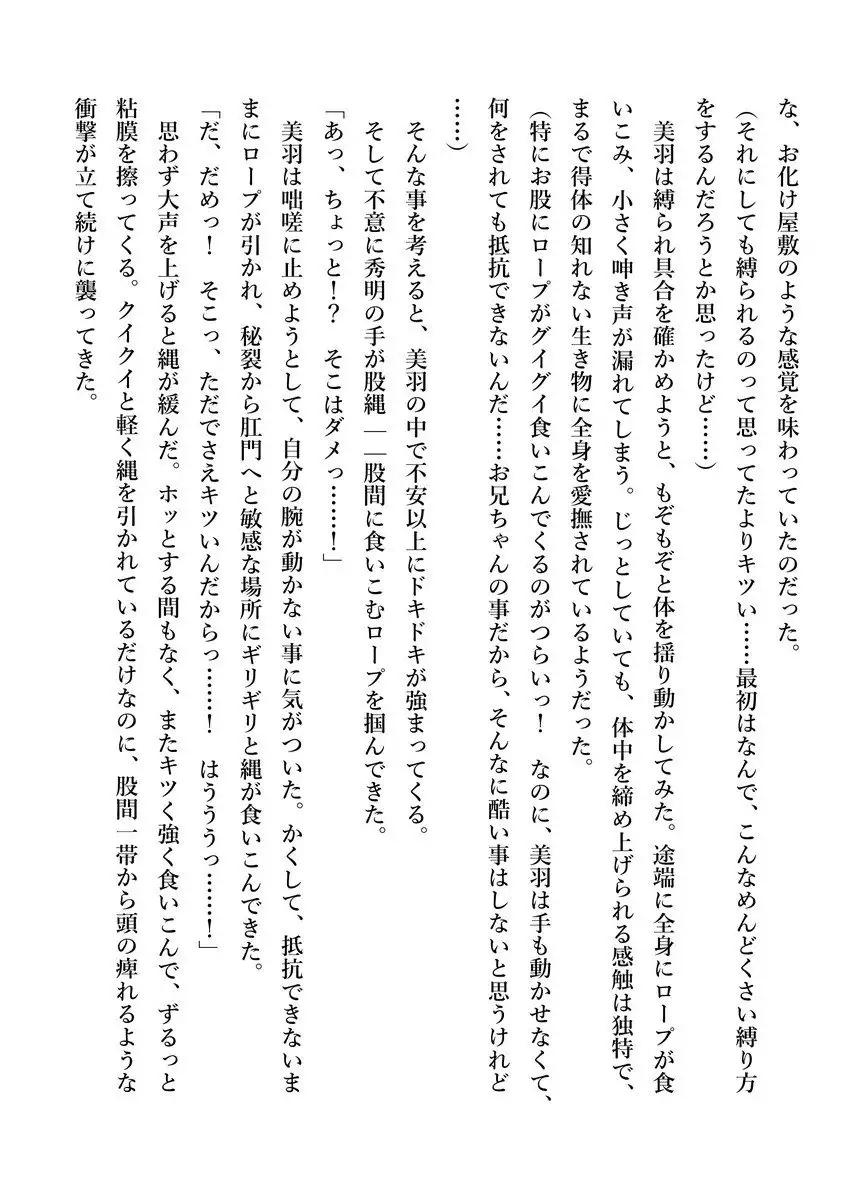 な、お化け屋敷のような感覚を味わっていたのだった。
(それにしても縛られるのって思ってたよりキツい……最初はなんで、こんなめんどくさい縛り方
をするんだろうとか思ったけど……)
美羽は縛られ具合を確かめようと、もぞもぞと体を揺り動かしてみた。途端に全身にロープが食
いこみ、小さく呻き声が漏れてしまう。じっとしていても、体中を締め上げられる感触は独特で、
まるで得体の知れない生き物に全身を愛撫されているようだった。
(特にお股にロープがグイグイ食いこんでくるのがつらいっ！　なのに、美羽は手も動かせなくて、
何をされても抵抗できないんだ……お兄ちゃんの事だから、そんなに酷い事はしないと思うけれど
……)
そんな事を考えると、美羽の中で不安以上にドキドキが強まってくる。
そして不意に秀明の手が股縄――股間に食いこむロープを掴んできた。
「あっ、ちょっと！？　そこはダメっ……！」
美羽は咄嗟に止めようとして、自分の腕が動かない事に気がついた。かくして、抵抗できないま
まにロープが引かれ、秘裂から肛門へと敏感な場所にギリギリと縄が食いこんできた。
「だ、だめっ！　そこっ、ただでさえキツいんだからっ……！　はうううっ……！」
思わず大声を上げると縄が緩んだ。ホッとする間もなく、またキツく強く食いこんで、ずるっと
粘膜を擦ってくる。クイクイと軽く縄を引かれているだけなのに、股間一帯から頭の痺れるような
衝撃が立て続けに襲ってきた。